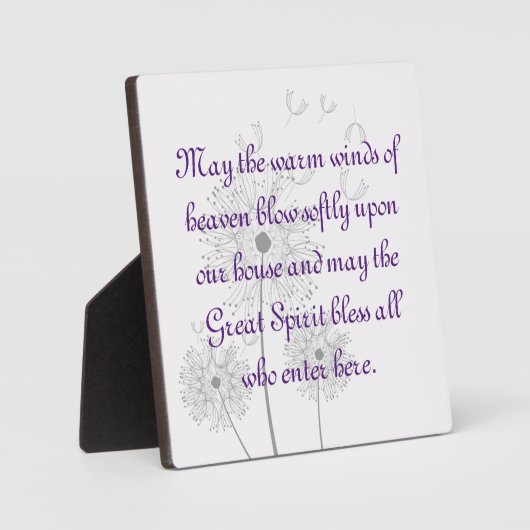 May the warm winds of
heaven blow softly upon
our house and may the
Great Spirit bless all
who enter here.